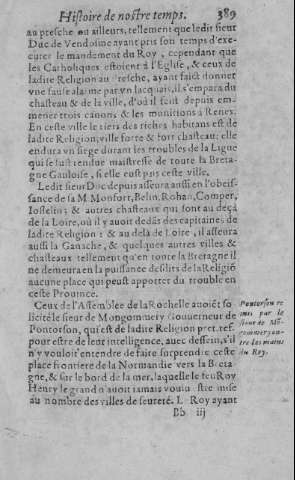 Histoire de nostre temps. 389
au presche ou ailleurs, tellement que ledit sieur
Duc de Vendosme ayant pris son temps d'exe-
cuter le mandement du Roy, cependant que
les Catholiques estoient à l'Eglise, & ceux de
ladite Religion au Presche, ayant faict donner
vne fausse alarme par vn lacquais, il s'empara du
chasteau & de la ville, d'où il feit depuis em-
mener trois canons & les munitions à Renes.
En ceste ville le tiers des riches habitans est de
ladite Religion; ville forte & fort chasteau: elle
endura vn siege durant les troubles de la Ligue
qui se fust rendue maistresse de toute la Breta-
gne Gauloise, si elle eust pris ceste ville.
Ledit sieur Duc depuis asseura aussi en l'obeis-
sance de sa M. Monfort, Belin, Rohan, Comper,
Iosselin: & autres chasteaux qui sont au deçà
de la Loire, où il y auoit dedās des capitaines de
ladite Religion: & au delà de Loire, il asseura
aussi la Ganache, & quelques autres villes &
chasteaux tellement qu'en toute la Bretagne il
ne demeura en la puissance desdits de la Religiō
aucune place qui peust apporter du trouble en
ceste Prouince.
Ceux de l'Assemblee de la Rochelle auoiēt so-
licité le sieur de Mongommery Gouuerneur de
Pontorson, qui est de ladite Religion pret. ref.
pour estre de leur intelligence, auec dessein, s'il
n'y vouloit entendre de faire surprendre ceste
place frontiere de la Normandie vers la Breta-
gne, & sur le bord de la mer, laquelle le feu Roy
Henry le grand n'auoit iamais voulu estre mise
au nombre des villes de seureté. L Roy ayant
Bb iij
Pontorson re
mis par le
sieur de Mō-
gommery en-
tre les mains
du Roy.